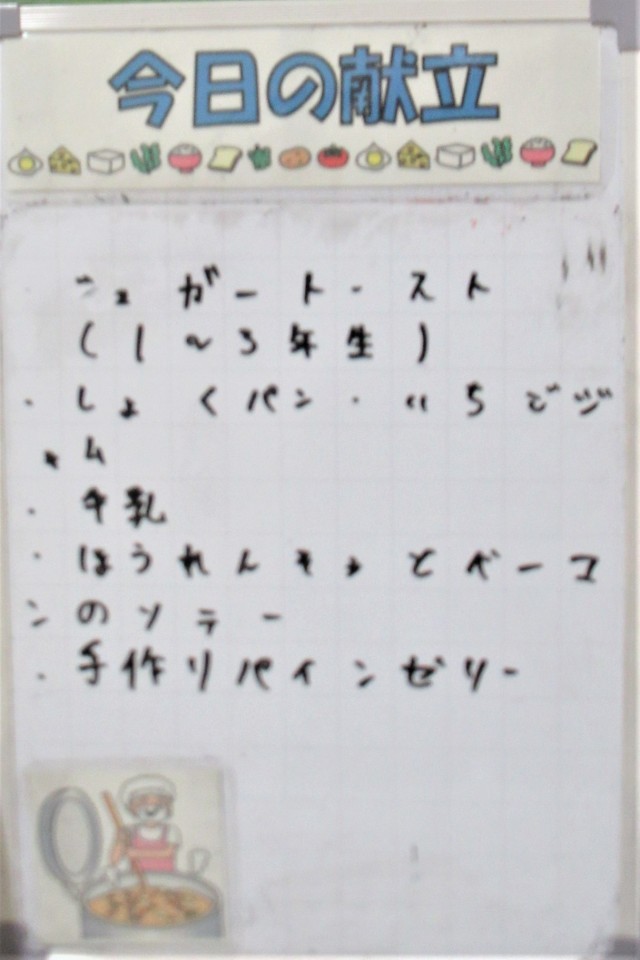 今日の献立
・シュガートースト
(1〜3年生)
・しょくパン・いちごジ
ャム
・牛乳
・ほうれんそうとベーコ
ンのソテー
・手作りパインゼリー